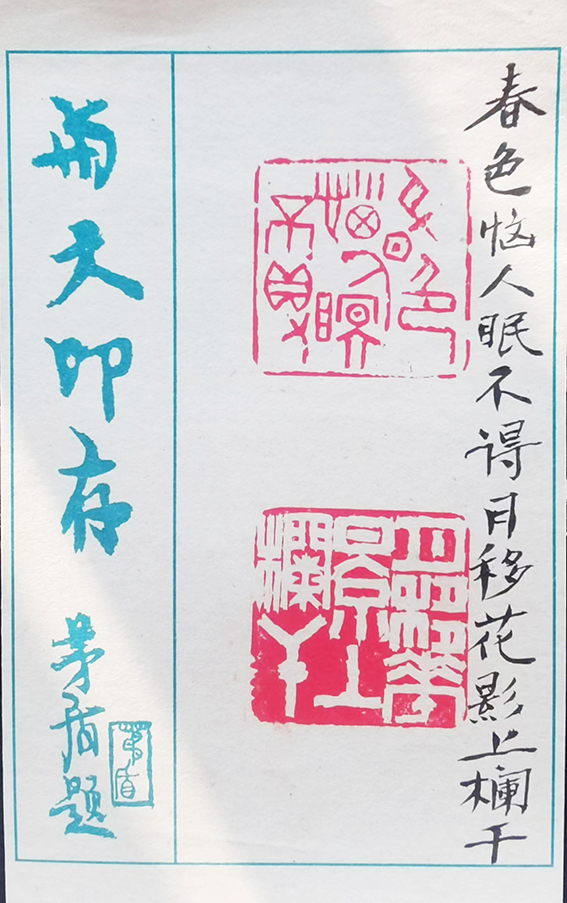 春色恼人眠不得月移花影上欄干
春色惱人眠不得
月移花影上欄干
天印存
茅盾题
茅盾